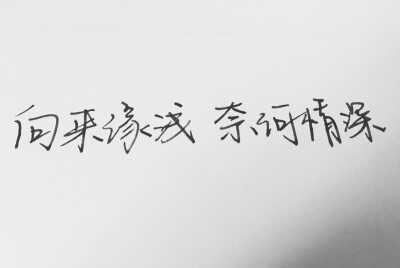 向来缘浅 奈何情深